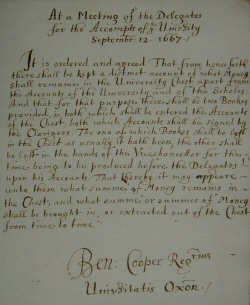 At a Meeting of the Delegates
for the Accompts of yͤ Univʳsity
Septembʳ. 12. 1667./
It is ordered and agreed That from henceforth
there shall be kept a distinct account of what Money
shall remaine in the University Chest apart from
the Accounts of the University and of the Schooles
And that for that purpose there shall be two Books
provided in both which shall be entered the Accounts
of the Chest both which Accounts shall be signed by
the Clavigers. The one of which Bookes shall be left
in the Chest as usually it hath been, the other shall
be left in the hands of the Vicechancellor for the
time being to be produced before the Delegates
upon his Accounts. That thereby it may appeare
unto them what summe of Money remains in
the Chest, and what summe or summes of Money
shall be brought in, or extracted out of the Chest
from time to time./
Ben: Cooper Regʳᵃʳⁱᵘˢ
Univʳsitatis Oxon./